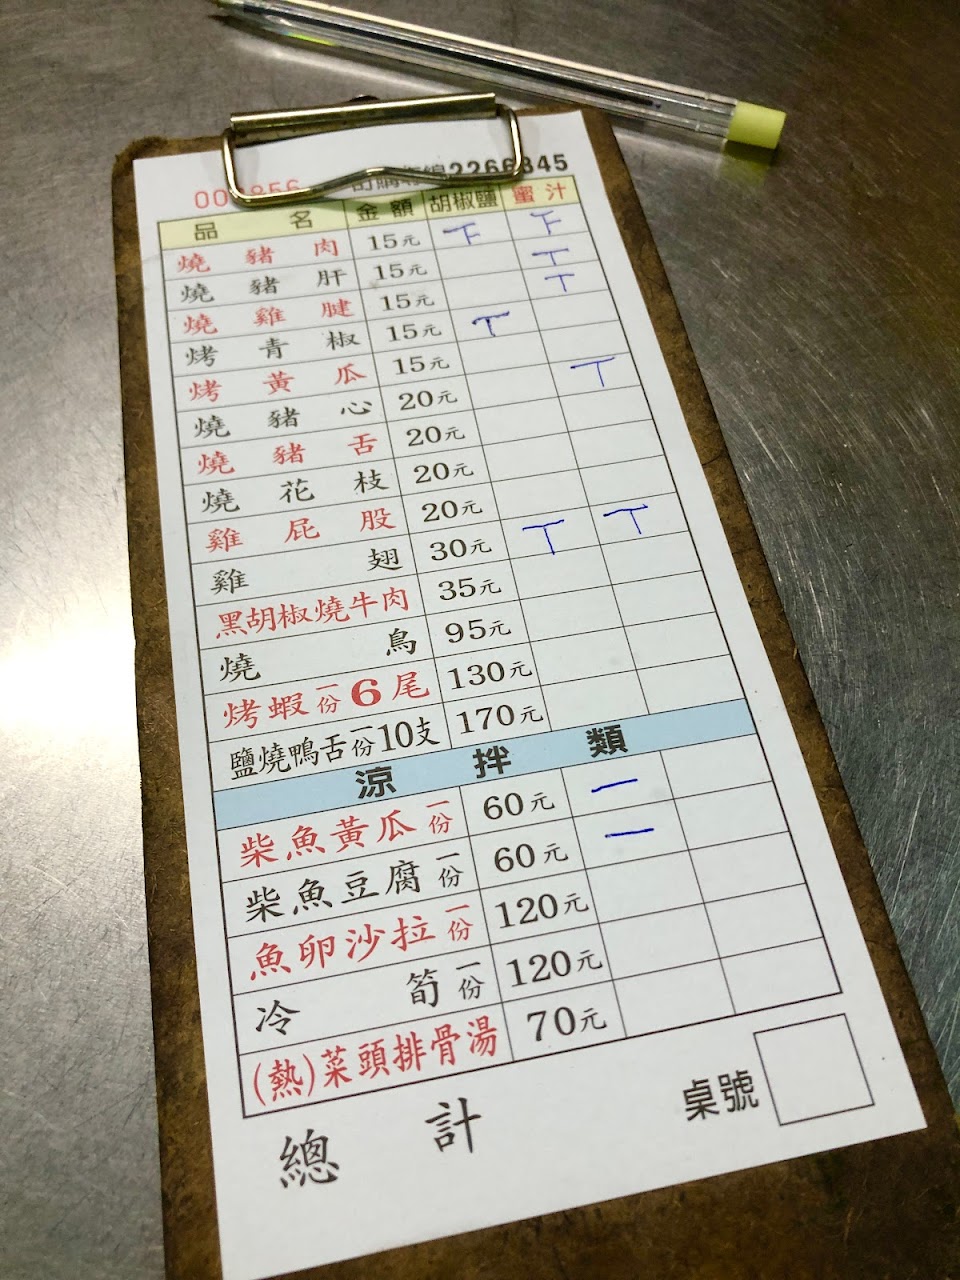 品名 金額 胡椒鹽 蜜汁
燒豬肉 15元 下 下
燒豬肝 15元 丅
燒雞腱 15元 丅
烤青椒 15元 丅
烤黃瓜 15元
燒豬心 20元 丅
燒豬舌 20元
燒花枝 20元
雞屁股 20元
雞翅 30元 丅 丅
黑胡椒燒牛肉 35元
燒鳥 95元
烤蝦一份6尾 130元
鹽燒鴨舌一份10支 170元
涼拌類
柴魚黃瓜一份 60元 一
柴魚豆腐一份 60元 一
魚卵沙拉一份 120元
冷筍一份 120元
(熱)菜頭排骨湯 70元
總計 桌號